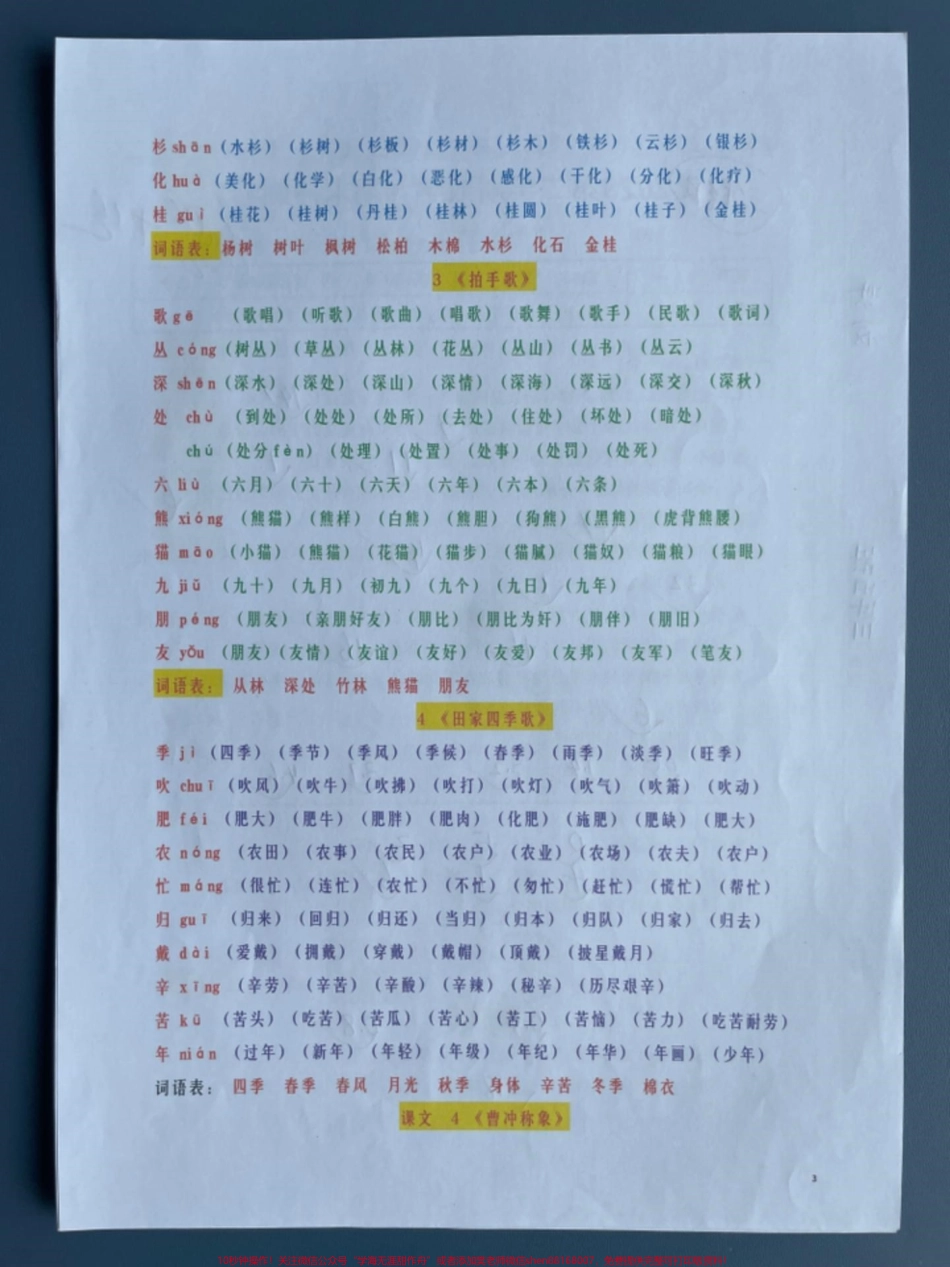 杉 shān（水杉）（杉树）（杉板）（杉材）（杉木）（铁杉）（云杉）（银杉）
化 huà（美化）（化学）（白化）（恶化）（感化）（干化）（分化）（化疗）
桂 guì（桂花）（桂树）（丹桂）（桂林）（桂圆）（桂叶）（桂子）（金桂）
词语表：杨树 树叶 枫树 松柏 木棉 水杉 化石 金桂
3 《拍手歌》
歌 gē （歌唱）（听歌）（歌曲）（唱歌）（歌舞）（歌手）（民歌）（歌词）
丛 cóng（树丛）（草丛）（丛林）（花丛）（丛山）（丛书）（丛云）
深 shēn（深水）（深处）（深山）（深情）（深海）（深远）（深交）（深秋）
处 chù （到处）（处处）（处所）（去处）（住处）（坏处）（暗处）
chú（处分fèn）（处理）（处置）（处事）（处罚）（处死）
六 liù （六月）（六十）（六天）（六年）（六本）（六条）
熊 xióng （熊猫）（熊样）（白熊）（熊胆）（狗熊）（黑熊）（虎背熊腰）
猫 māo （小猫）（熊猫）（花猫）（猫步）（猫腻）（猫奴）（猫粮）（猫眼）
九 jiǔ （九十）（九月）（初九）（九个）（九日）（九年）
朋 péng （朋友）（亲朋好友）（朋比）（朋比为奸）（朋伴）（朋旧）
友 yǒu （朋友）（友情）（友谊）（友好）（友爱）（友邦）（友军）（笔友）
词语表： 从林 深处 竹林 熊猫 朋友
4 《田家四季歌》
季 jì（四季）（季节）（季风）（季候）（春季）（雨季）（淡季）（旺季）
吹 chuī（吹风）（吹牛）（吹拂）（吹打）（吹灯）（吹气）（吹箫）（吹动）
肥 féi（肥大）（肥牛）（肥胖）（肥肉）（化肥）（施肥）（肥缺）（肥大）
农 nóng （农田）（农事）（农民）（农户）（农业）（农场）（农夫）（农户）
忙 máng （很忙）（连忙）（农忙）（不忙）（匆忙）（赶忙）（慌忙）（帮忙）
归 guī （归来）（回归）（归还）（当归）（归本）（归队）（归家）（归去）
戴 dài （爱戴）（拥戴）（穿戴）（戴帽）（顶戴）（披星戴月）
辛 xīng （辛劳）（辛苦）（辛酸）（辛辣）（秘辛）（历尽艰辛）
苦 kǔ （苦头）（吃苦）（苦瓜）（苦心）（苦工）（苦恼）（苦力）（吃苦耐劳）
年 nián （过年）（新年）（年轻）（年级）（年纪）（年华）（年画）（少年）
词语表： 四季 春季 春风 月光 秋季 身体 辛苦 冬季 棉衣
课文 4 《曹冲称象》
3